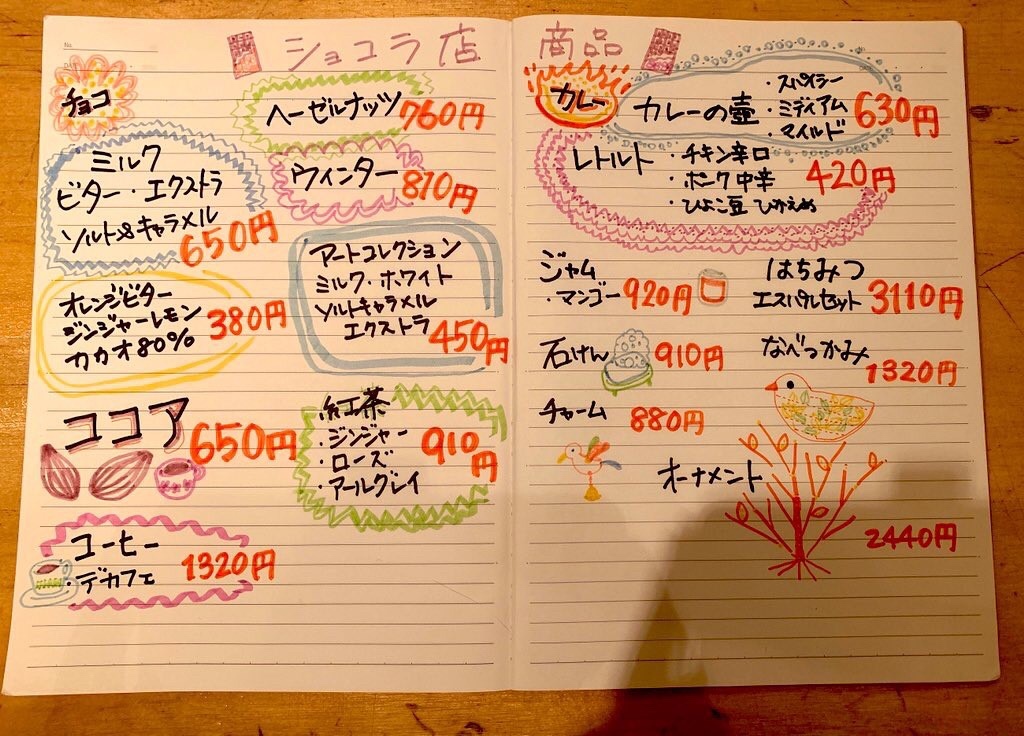 ショコラ店
チョコ
ヘーゼルナッツ 760円
ミルク
ビター・エクストラ
ソルト&キャラメル
650円
ウィンター 870円
オレンジビター
ジンジャーレモン
カカオ80%
380円
アートコレクション
ミルク・ホワイト
ソルトキャラメル
エクストラ
450円
ココア 650円
紅茶
・ジンジャー
・ローズ
・アールグレイ
910円
コーヒー
・デカフェ 1320円
商品
カレー
カレーの壺
・スパイシー
・ミディアム
・マイルド
630円
レトルト
・チキン辛口
・ポーク中辛
・ひよこ豆 ひかえめ
420円
ジャム
・マンゴー 920円
はちみつ
エスパルセット 3110円
石けん 910円
なべつかみ
1320円
チャーム 880円
オーナメント
2440円